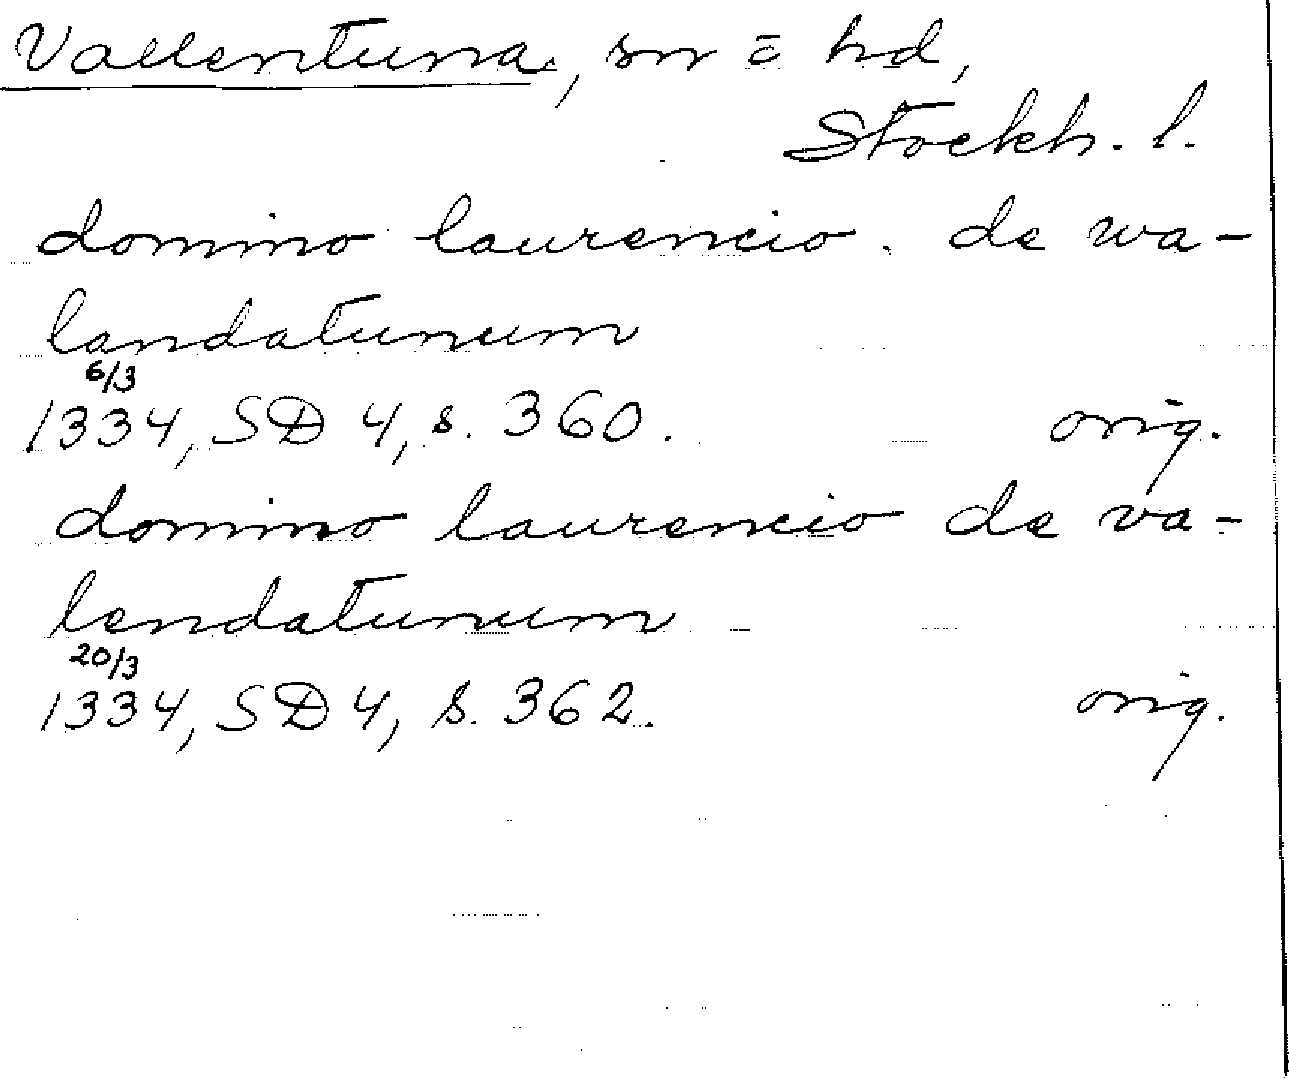 Vallentuna, sn = hd,
Stockh. l.
domino laurencio. de wa-
landatunum
6/3
1334, SD 4, s. 360. orig.
domino laurencio de va-
lendatunum
20/3
1334, SD 4, s. 362. orig.